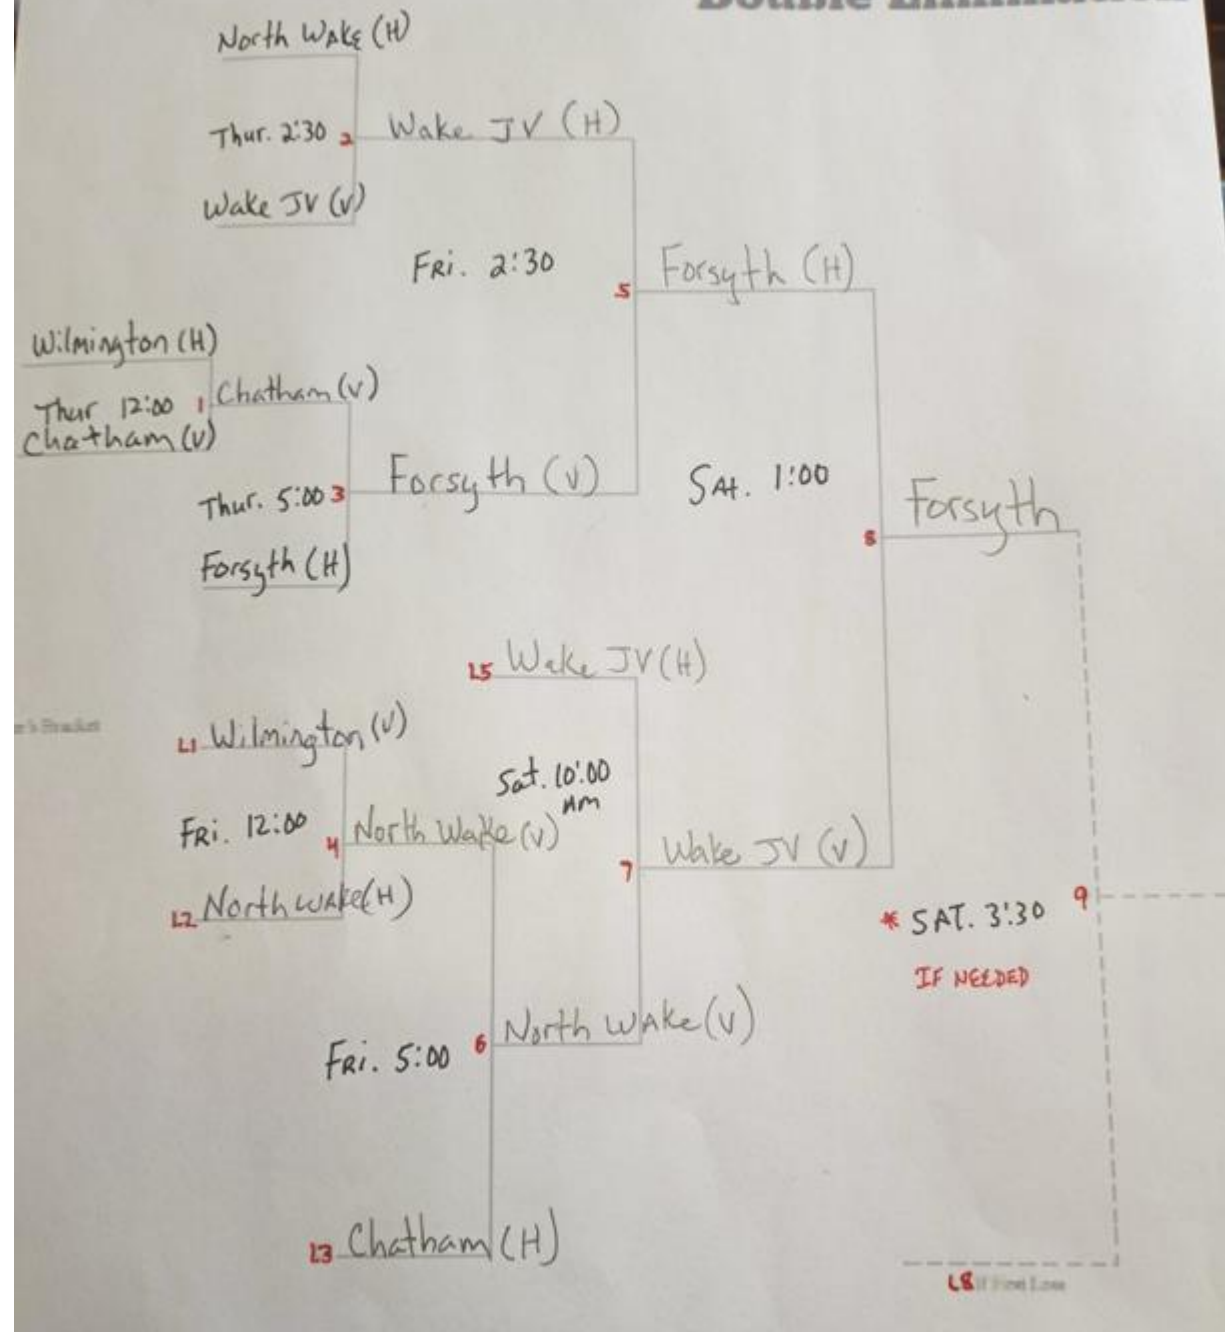 North Wake (H)
Thur. 2:30 2 Wake JV (H)
Wake JV (V)
Fri. 2:30
5 Forsyth (H)
Wilmington (H)
Thur 12:00 1 Chatham (V)
Chatham (V)
Thur. 5:00 3 Forsyth (V)
Sat. 1:00
8 Forsyth
Forsyth (H)
L5 Wake JV (H)
L1 Wilmington (V)
Sat. 10:00
AM
Fri. 12:00 4 North Wake (V)
7 Wake JV (V)
L2 North Wake (H)
* SAT. 3:30 9
IF NEEDED
Fri. 5:00 6 North Wake (V)
L3 Chatham (H)
L8 If First Loss